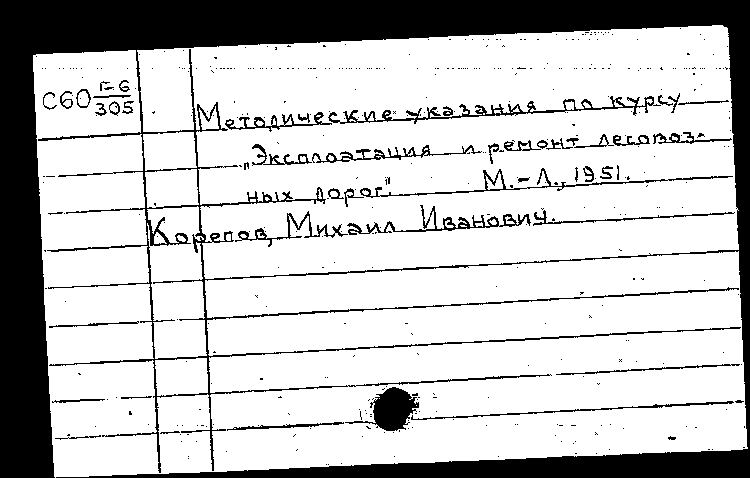 С60 Г-6/305
Методические указания по курсу
„Эксплоатация и ремонт лесовоз-
ных дорог". М.-Л., 1951.
Корепов, Михаил Иванович.